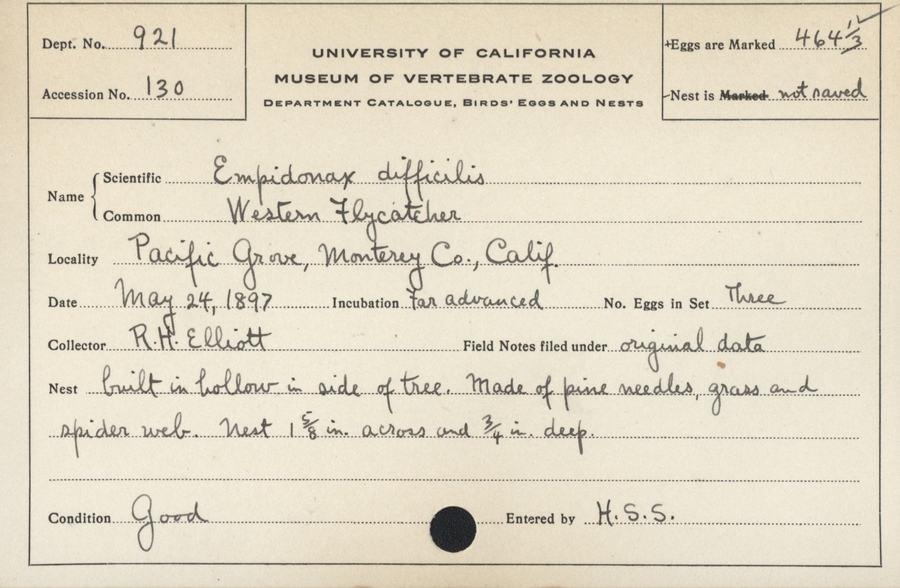 Dept. No. 921
Accession No. 130
UNIVERSITY OF CALIFORNIA
MUSEUM OF VERTEBRATE ZOOLOGY
DEPARTMENT CATALOGUE, BIRDS' EGGS AND NESTS
Eggs are Marked 464 1/3
Nest is Marked not saved
Name { Scientific Empidonax difficilis
Common Western Flycatcher
Locality Pacific Grove, Monterey Co., Calif.
Date May 24, 1897 Incubation Far advanced No. Eggs in Set Three
Collector R.H. Elliott Field Notes filed under original data
Nest built in hollow in side of tree. Made of pine needles, grass and
spider web. Nest 1 5/8 in. across and 3/4 in. deep.
Condition Good Entered by H.S.S.